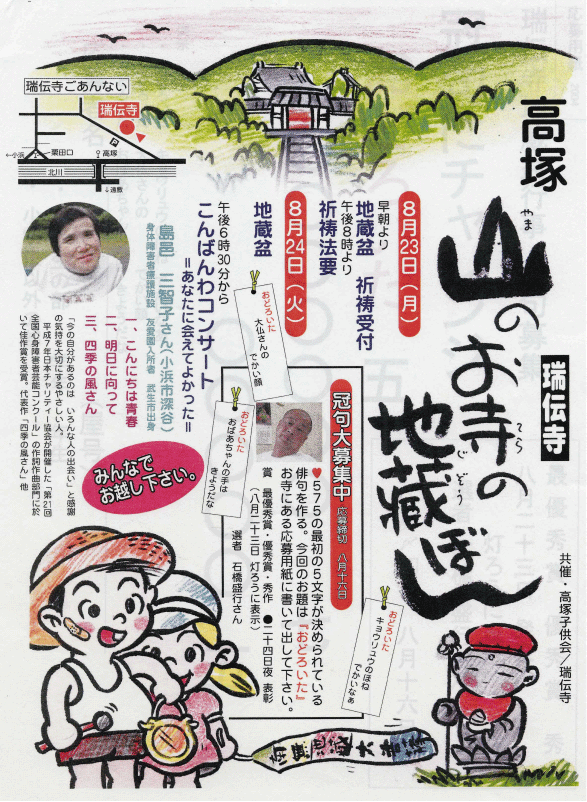 高塚
瑞伝寺
山のお寺の
やま
てら
地蔵ぼん
じぞう
共催・高塚子供会／瑞伝寺
8月23日（月）
早朝より
地蔵盆 祈祷受付
午後8時より
祈祷法要
8月24日（火）
地蔵盆
午後6時30分から
こんばんわコンサート
＝あなたに会えてよかった＝
島邑 三智子さん（小浜市深谷）
身体障害者療護施設 友愛園入所者 武生市出身
一、こんにちは青春
二、明日に向って
三、四季の風さん
「今の自分があるのは いろんな人の出会い」と感謝
の気持を大切にするやさしい人。
平成7年日本チャリティー協会が開催した「第21回
全国心身障害者芸能コンクール」の作詞作曲部門に於
いて佳作賞を受賞。代表作「四季の風さん」他
瑞伝寺ごあんない
瑞伝寺
←小浜
粟田口
高塚
P
北川
↓遠敷
おどろいた
大仏さんの
でかい顔
おどろいた
おばあちゃんの手は
きようだな
おどろいた
キョウリュウのほね
でかいなあ
冠句大募集中 応募締切 八月十六日
♥575の最初の5文字が決められている
俳句を作る。今回のお題は『おどろいた』
お寺にある応募用紙に書いて出して下さい。
賞 最優秀賞・優秀賞・秀作 ●二十四日夜 表彰
（八月二十三日 灯ろうに表示）
選者 石橋盛行さん
みんなで
お越し下さい。